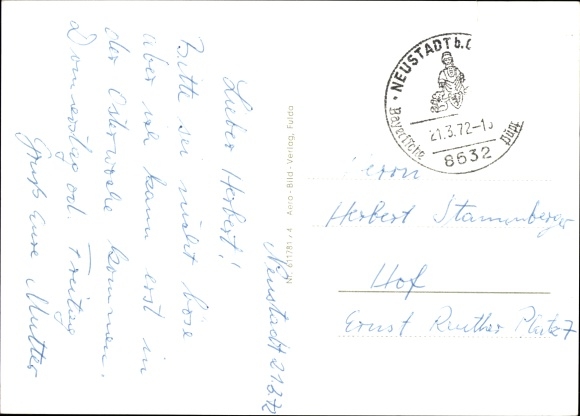 Neustadt 21.3.72
Lieber Herbert!
Bitte sei nicht böse
aber ich kann erst in
der Osterwoche kommen.
Donnerstag od. Freitag
Gruß Eure Mutter
Nr. 611781/4 Aero-Bild-Verlag, Fulda
NEUSTADT b. C
21.3.72-1
8632
Bayerische
Pupp
Herrn
Herbert Stammberger
Hof
Ernst Reuther Platz 7